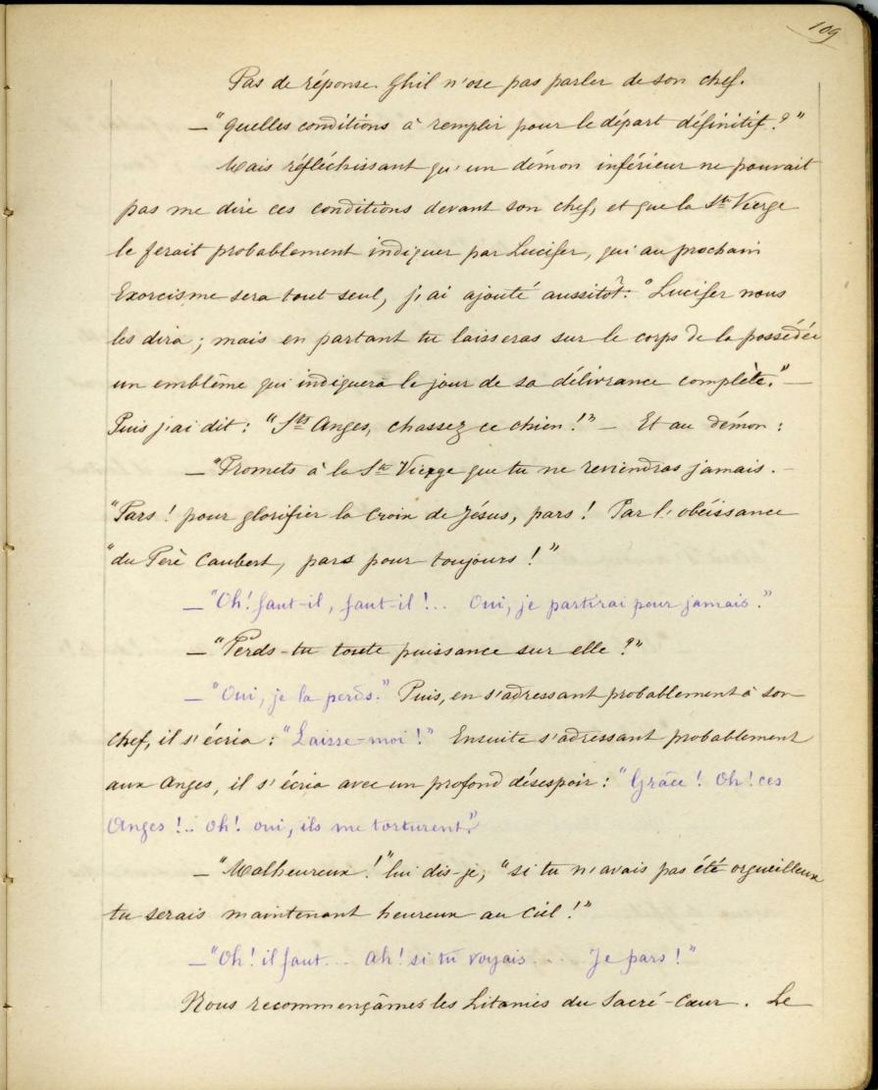 109
Pas de réponse. Ghil n'ose pas parler de son chef.
— "Quelles conditions à remplir pour le départ définitif?"
Mais réfléchissant qu'un démon inférieur ne pouvait
pas me dire ces conditions devant son chef, et que la Ste Vierge
le ferait probablement indiquer par Lucifer, qui au prochain
Exorcisme sera tout seul, j'ai ajouté aussitôt: "Lucifer nous
les dira; mais en partant tu laisseras sur le corps de la possédée
un emblême qui indiquera le jour de sa délivrance complète." —
Puis j'ai dit: "Sts Anges, chassez ce chien!" — Et au démon:
— "Promets à la Ste Vierge que tu ne reviendras jamais. —
"Pars! pour glorifier la Croix de Jésus, pars! Par l'obéissance
"du Père Caubert, pars pour toujours!"
— "Oh! faut-il, faut-il!.. Oui, je partirai pour jamais."
— "Perds-tu toute puissance sur elle?"
— "Oui, je la perds." Puis, en s'adressant probablement à son
chef, il s'écria: "Laisse-moi!" Ensuite s'adressant probablement
aux Anges, il s'écria avec un profond désespoir: "Grâce! Oh! ces
Anges!.. Oh! oui, ils me torturent."
— "Malheureux!" lui dis-je, "si tu n'avais pas été orgueilleux
tu serais maintenant heureux au Ciel!"
— "Oh! il faut... Ah! si tu voyais.... Je pars!"
Nous recommençâmes les Litanies du Sacré-Cœur. Le